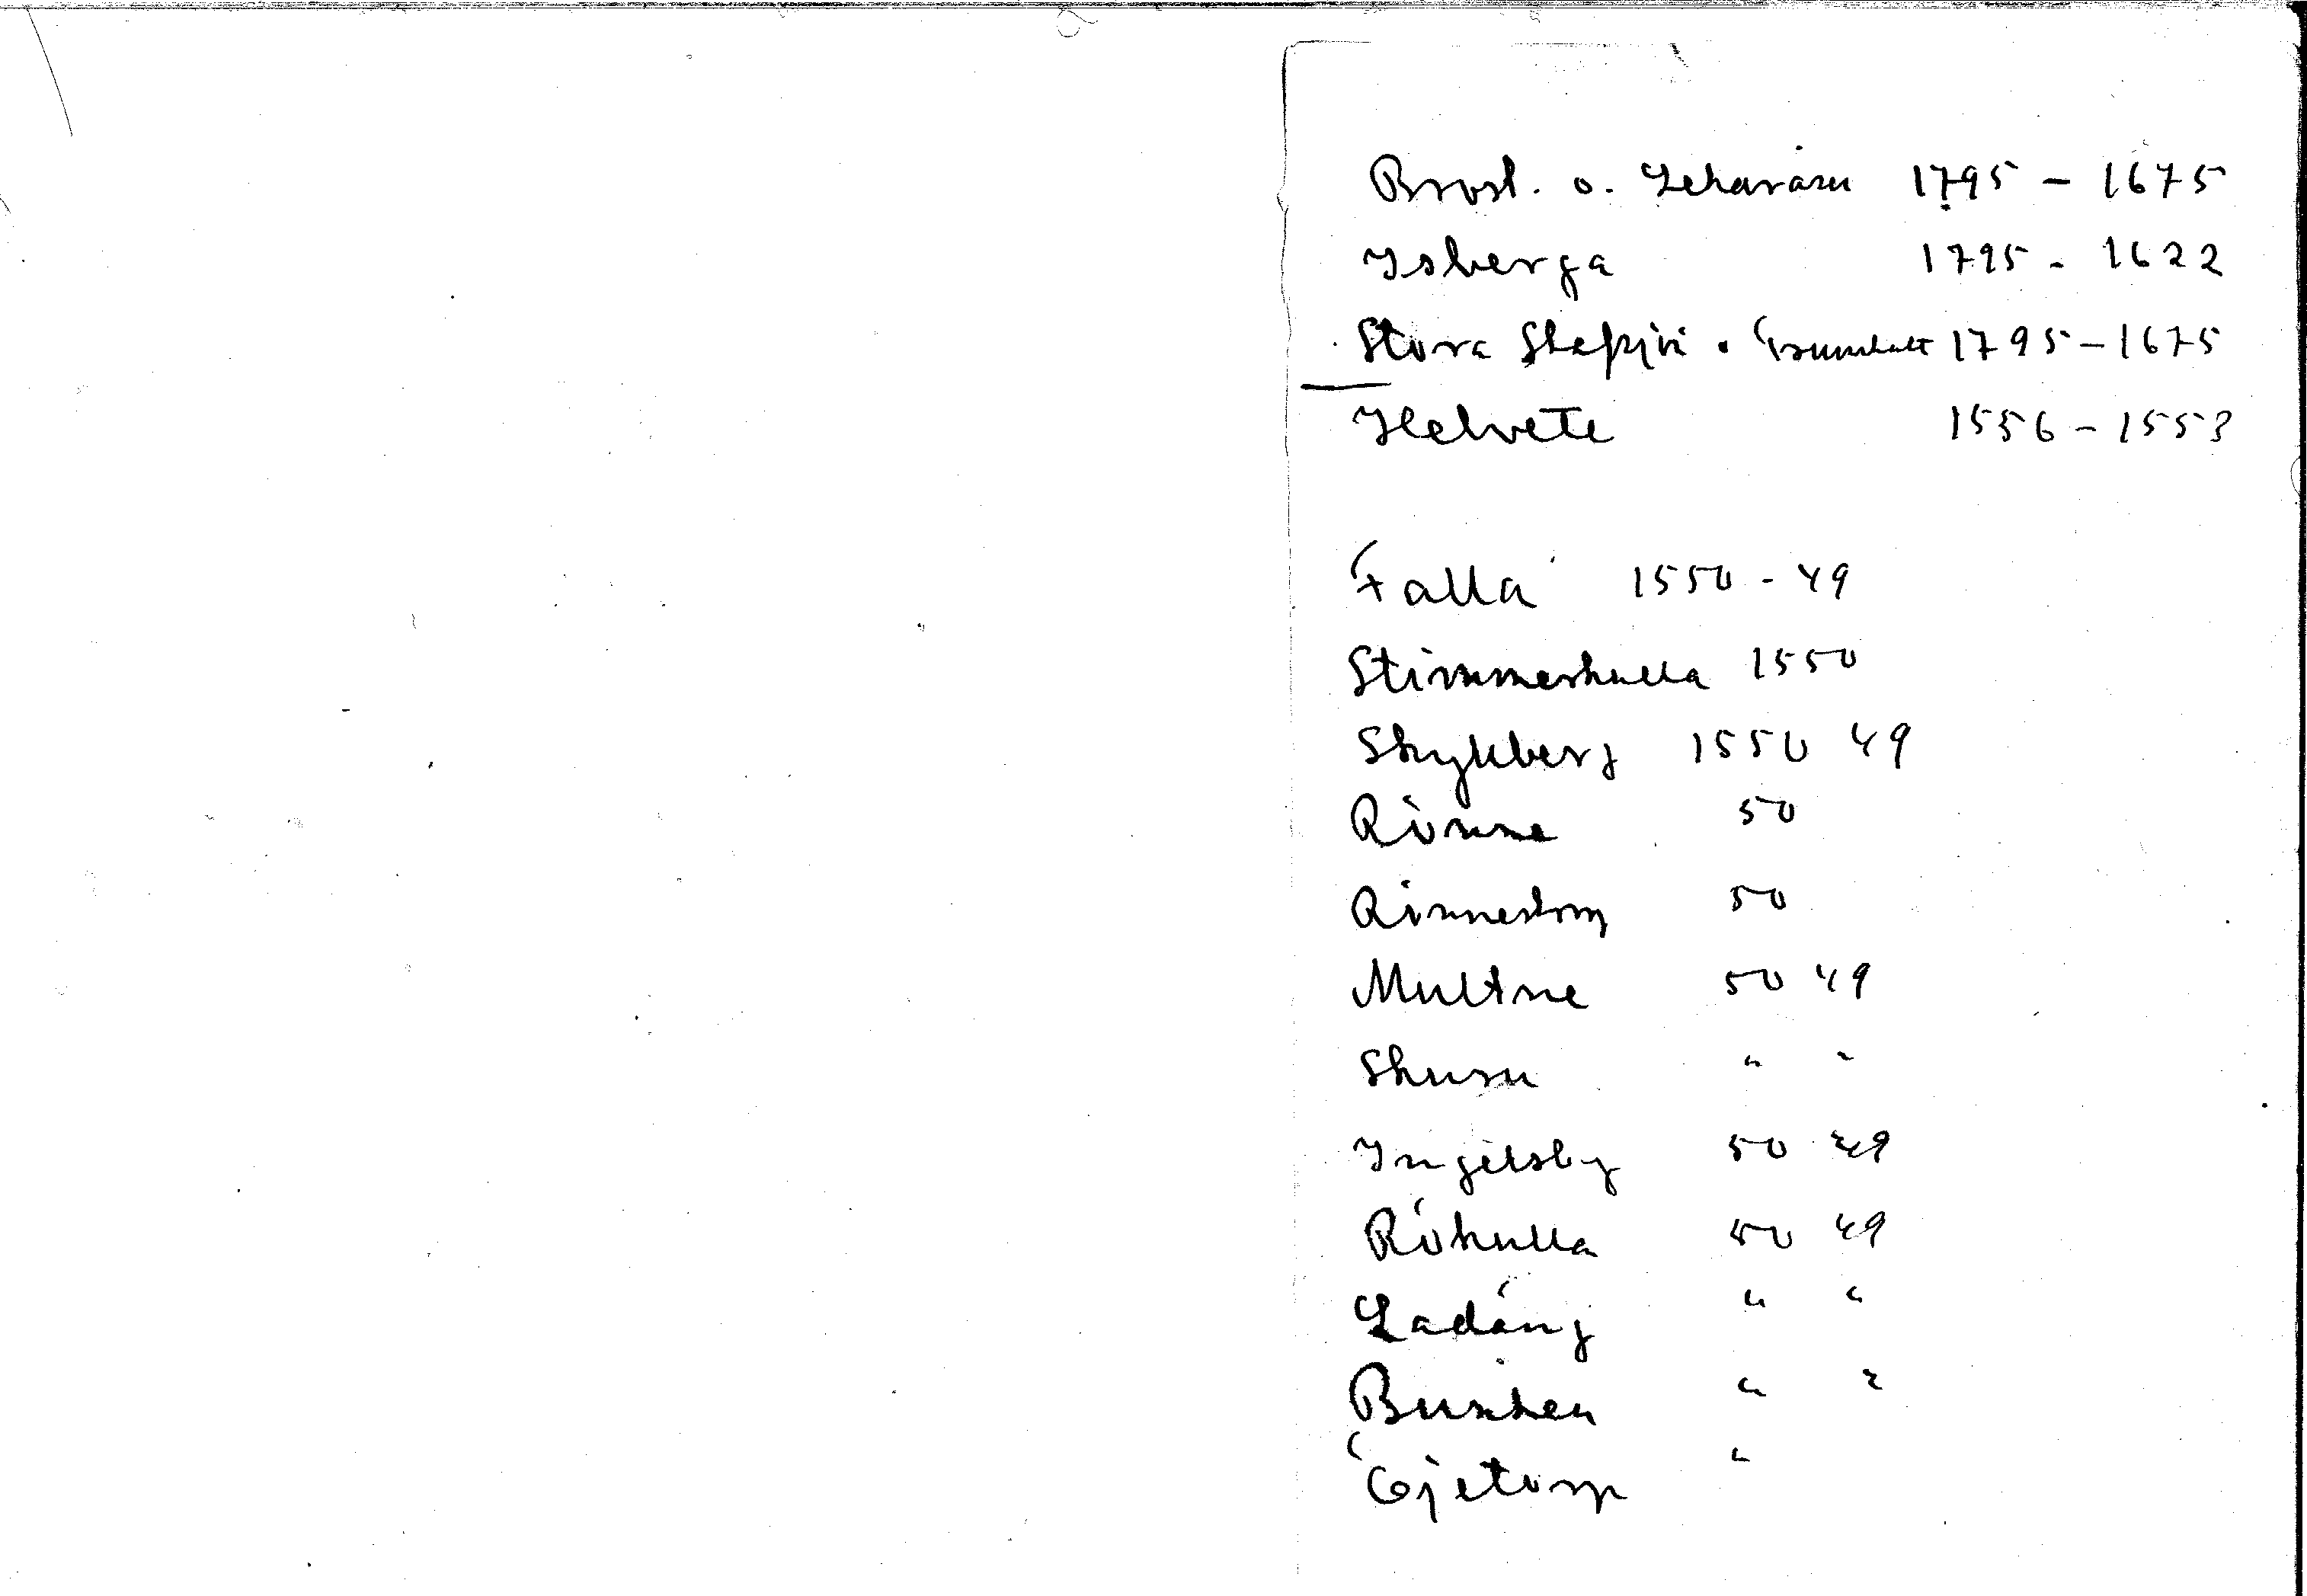 Brost. o. 1795 - 1675
Isberga 1795 - 1622
Stora 1795 - 1675
Helvete 1556 - 1553
Falla 1550 - 49
Stimmerhulla 1550
Skyllberg 1550 49
Rönne 50
Rönnestorp 50
Multna 50 49
Skurn " "
Ingelsby 50 49
Röhulla 50 49
Ladäng " "
" "
Göjetorp "